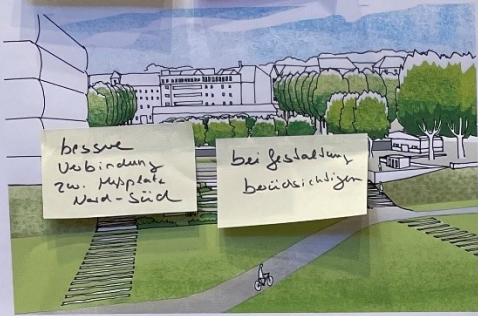 bessere
Verbindung
zw. Messplatz
Nord-Süd
bei Gestaltung
berücksichtigen